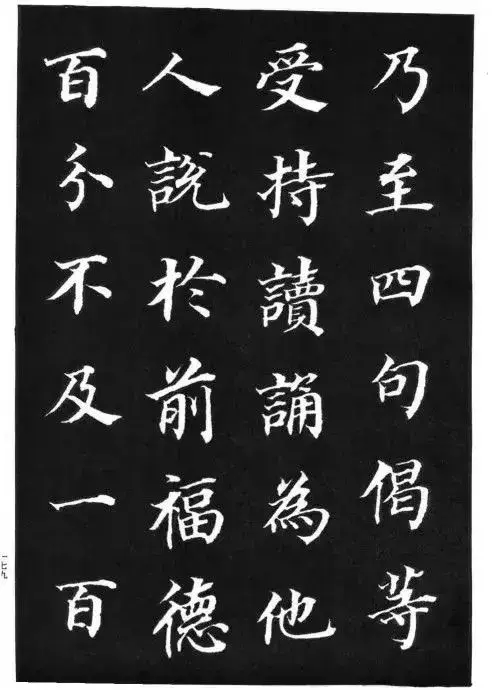 乃至四句偈等
受持讀誦為他
人說於前福德
百分不及一百
一七九